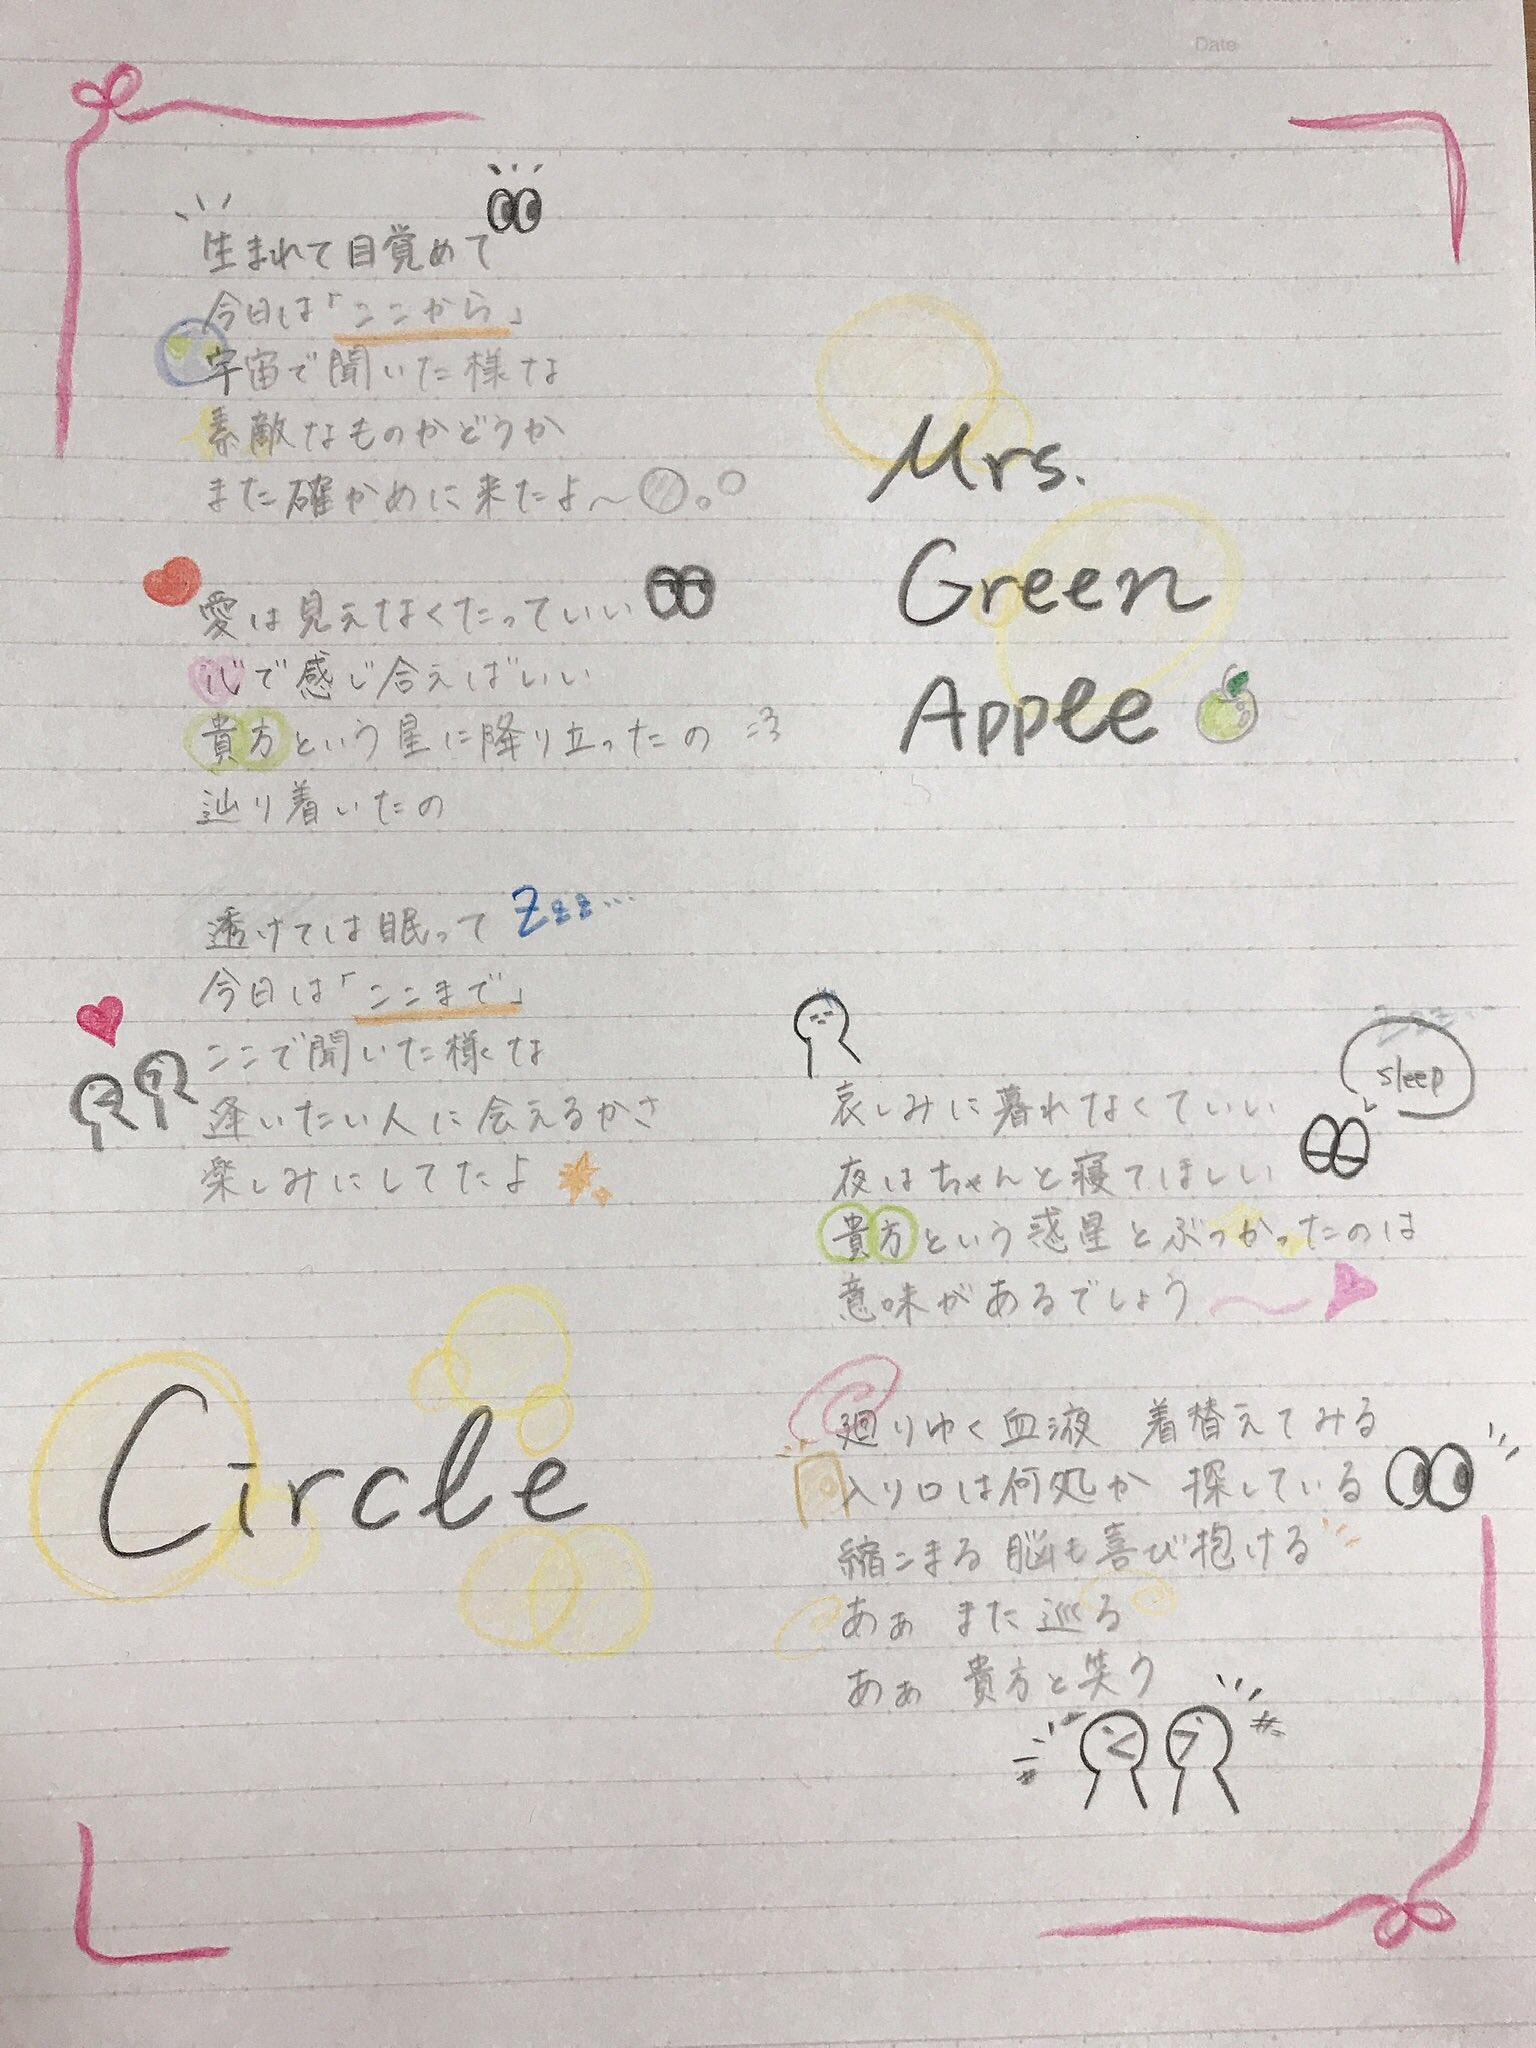 Date
生まれて目覚めて
今日は「ここから」
宇宙で聞いた様な
素敵なものかどうか
また確かめに来たよ〜
愛は見えなくたっていい
心で感じ合えばいい
貴方という星に降り立ったの
辿り着いたの
透けては眠って Zzz...
今日は「ここまで」
ここで聞いた様な
逢いたい人に会えるかさ
楽しみにしてたよ
Circle
Mrs.
Green
Apple
sleep
哀しみに暮れなくていい
夜はちゃんと寝てほしい
貴方という惑星とぶつかったのは
意味があるでしょう
廻りゆく血液 着替えてみる
入り口は何処か 探している
縮こまる脳も喜び抱ける
あぁ また巡る
あぁ 貴方と笑う